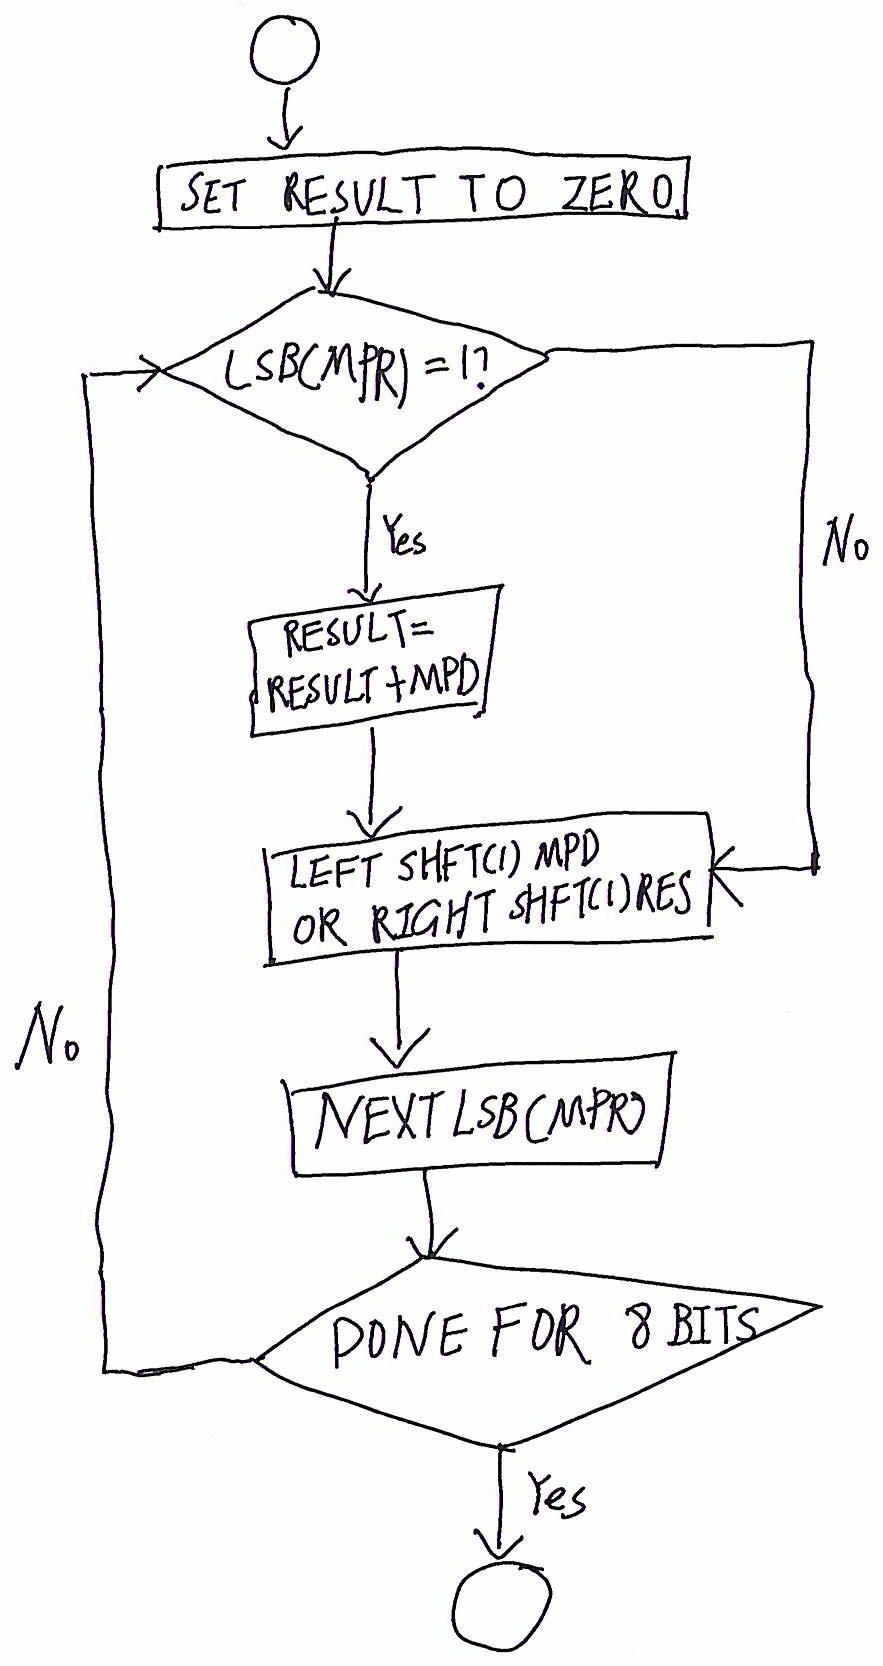 SET RESULT TO ZERO
LSB(MPR) = 1?
No
Yes
RESULT=
RESULT+MPD
LEFT SHFT(1) MPD
OR RIGHT SHFT(1)RES
NEXT LSB(MPR)
No
DONE FOR 8 BITS
Yes